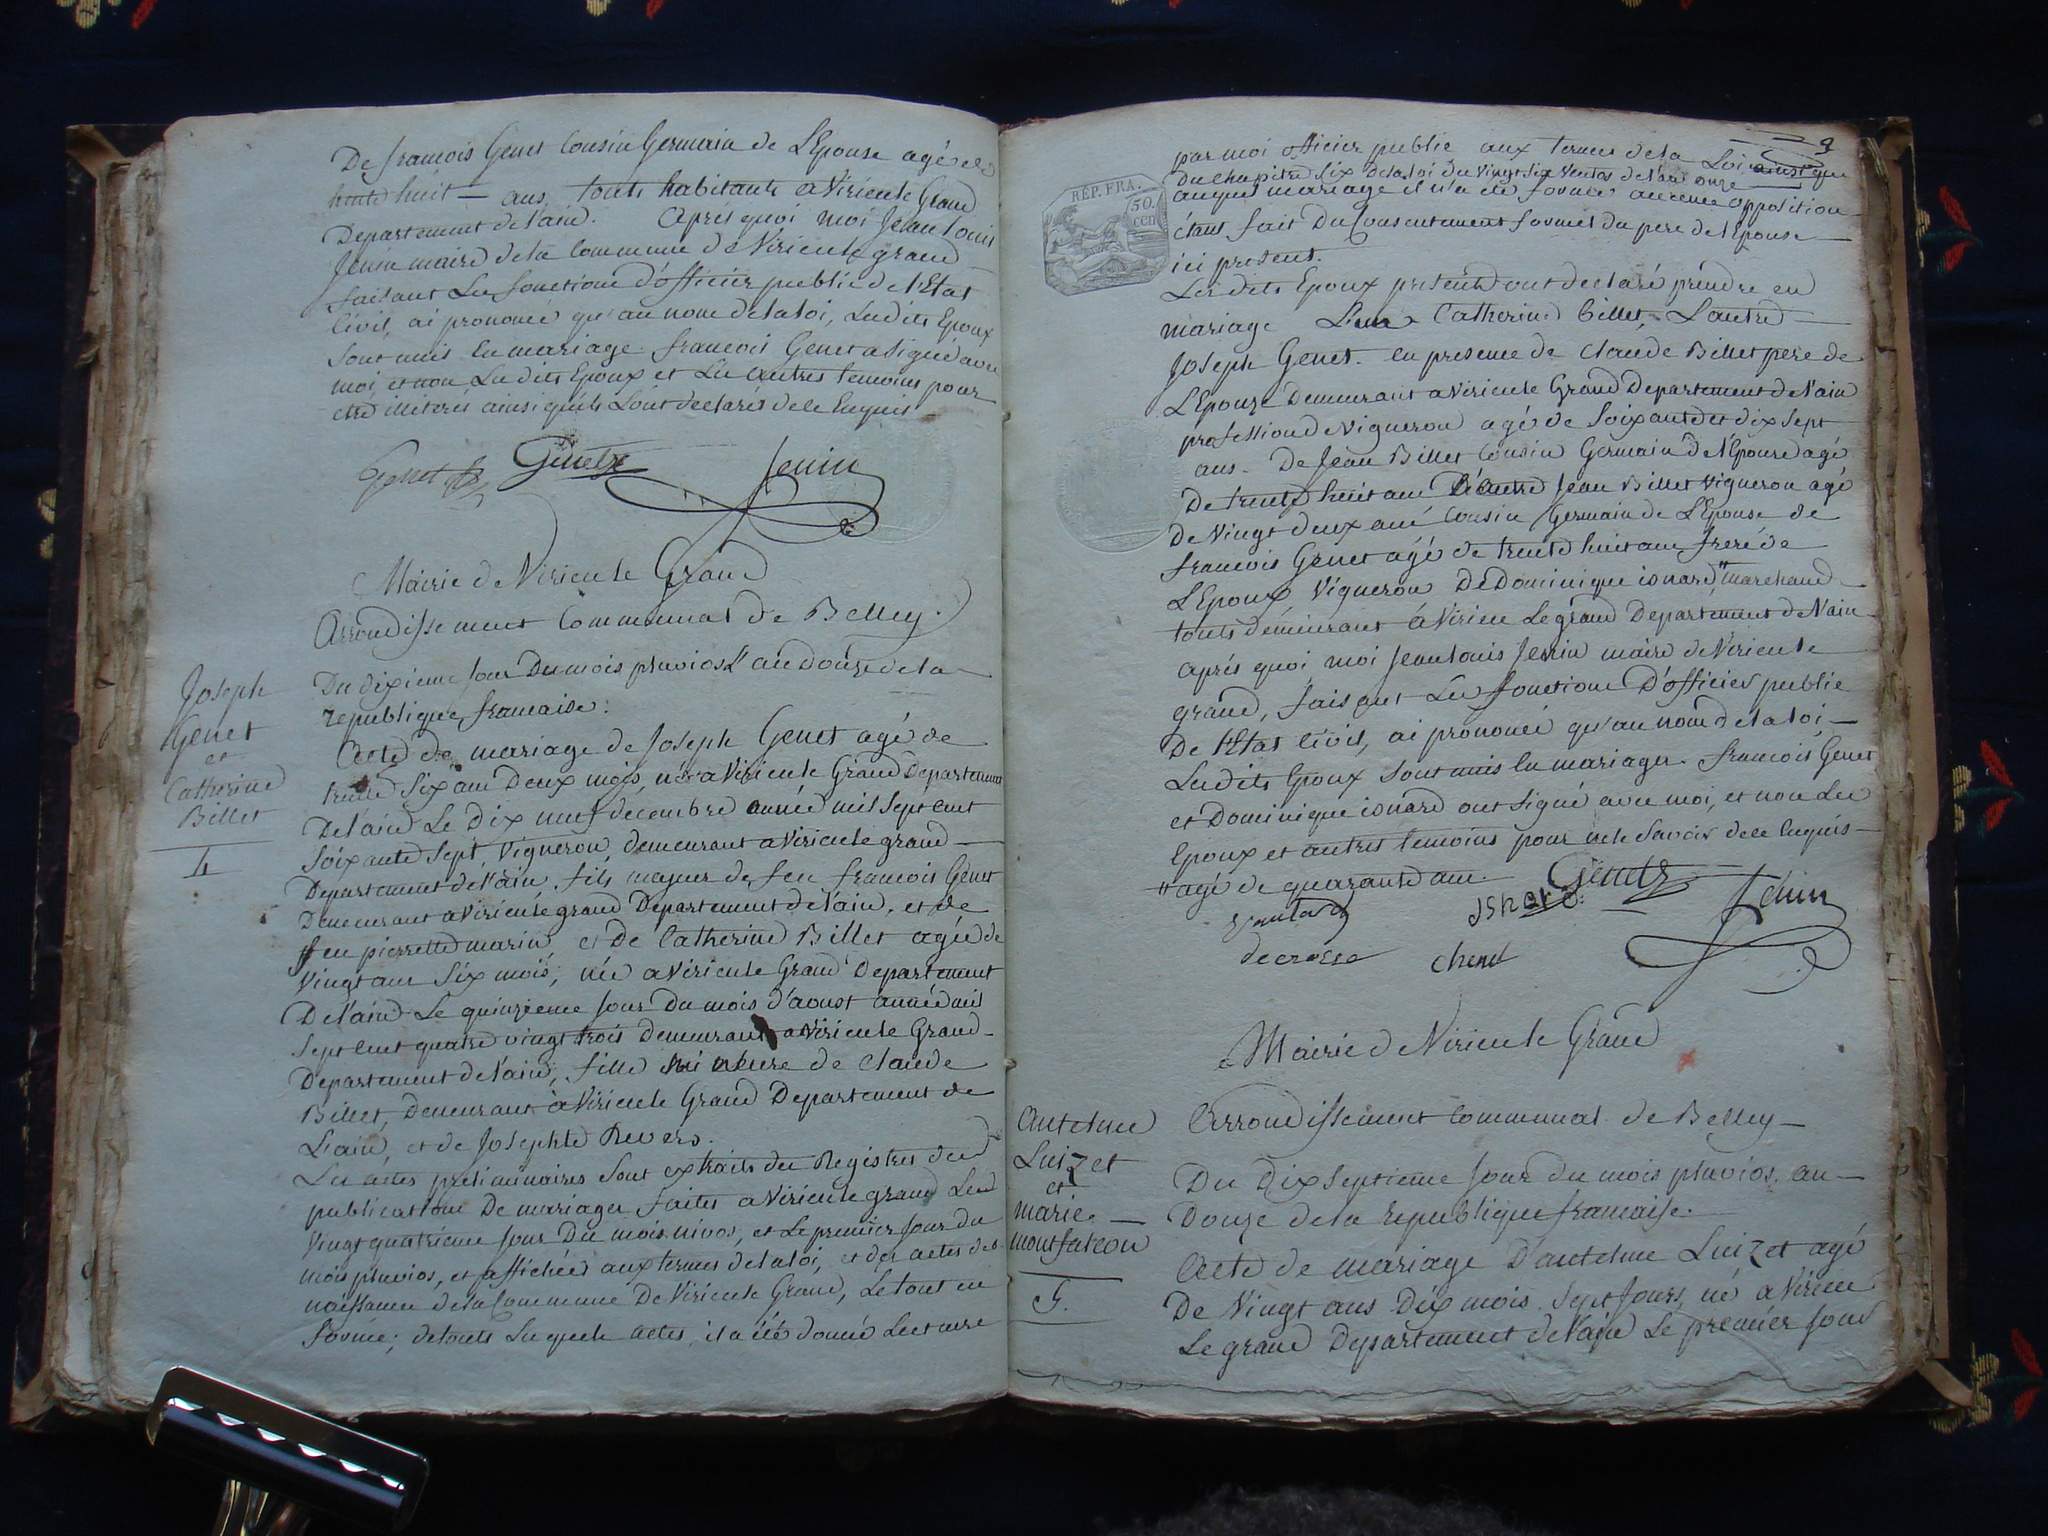 De francois Genet Cousin Germain de L'Epouse agé de
trente huit — ans, touts habitants a Virieu le Grand
Departement de l'ain. Aprés quoi moi Jean Louis
Jenin maire de la Commune de Virieu le grand
faisant Les fonctions d'officier public de l'Etat
Civil, ai prononcé qu'au nom de la loi, Lesdits Epoux
sont unis En mariage. francois Genet a signé avec
moi, et non Les dits Epoux et Les autres temoins pour
etre illiterés ainsi qu'ils L'ont declarés de ce Enquis
Genet Genet Jenin
Mairie de Virieu le Grand
Arrondissement Communal de Belley.
Du dixieme Jour Du mois pluviose an douze de la
republique francaise.
Joseph
Genet
et
Catherine
Billet
4
Acte de mariage de Joseph Genet agé de
trente Six ans Deux mois, né a Virieu le Grand Departement
De l'ain Le Dix neuf decembre année mil sept cent
soixante sept, Vigneron, demeurant a Virieu le grand
Departement de l'ain, fils majeur de feu francois Genet
Demeurant a Virieu le grand Departement de l'ain, et de
feu pierrette marin, et De Catherine Billet agée de
Vingt ans Six mois, née a Virieu le Grand Departement
De l'ain Le quinzieme Jour Du mois d'aoust année mil
Sept Cent quatre vingt trois demeurant a Virieu le Grand
Departement de l'ain, fille mineure de Claude
Billet, Demeurant a Virieu le Grand Departement de
L'ain, et de Josephte Revers.
Les actes preliminaires sont extraits des Registres des
publications De mariages faites a Virieu le grand Les
Vingt quatrieme Jour Du mois nivos, et Le premier Jour du
mois pluvios, et affichées aux termes de la loi, et des actes de
naissance de la Commune De Virieu le Grand, Le tout en
forme; de touts Lesquels actes, il a été donné Lecture
9
par moi officier public aux termes de la Loi ainsi que
Du Chapitre Six de la loi du Vingt Six Ventos de l'an onze
auquel mariage il n'a été formée aucune opposition
étant fait Du Consentement formel du pere de l'Epouse
ici present.
RÉP. FRA.
50.
CEN
Les dits Epoux presents ont declaré prendre en
mariage L'un Catherine Billet, L'autre
Joseph Genet. en presence de Claude Billet pere de
L'Epouze Demeurant a Virieu le Grand Departement de l'ain
profession de Vigneron agé de Soixante et dix Sept
ans. De Jean Billet Cousin Germain de l'Epouze agé
De trente huit ans De autre Jean Billet Vigneron agé
De Vingt deux ans Cousin Germain de L'Epouse de
francois Genet agé de trente huit ans frere de
L'Epoux Vigneron De Dominique isnard " marchand
touts demeurant a Virieu Le grand Departement de l'ain
aprés quoi moi Jean Louis Jenin maire de Virieu le
grand, faisant Les fonctions D'officier public
De l'Etat Civil, ai prononcé qu'au nom de la loi
Lesdits Epoux sont unis En mariage. francois Genet
et Dominique isnard ont signé avec moi, et non Les
Epoux et autres temoins pour ne le Savoir de ce Enquis
" agé de quarante ans. Genet
isnard Jenin
decrosse chenet
Mairie de Virieu le Grand
Arrondissement Communal de Belley
Du Dix Septieme Jour du mois pluvios. an
Douze de la Republique francaise.
Antelme
Luizet
et
marie
montfalcon
5.
Acte de mariage D'antelme Luizet agé
De Vingt ans Dix mois Sept Jours, né a Virieu
Le grand Departement de l'ain Le premier Jour